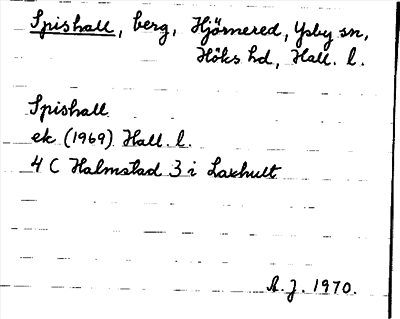 Spishall, berg, Hjörnered, Ysby sn,
Höks hd, Hall. l.
Spishall
ek (1969) Hall. l.
4 C Halmstad 3 i Laxhult
A. J. 1970.